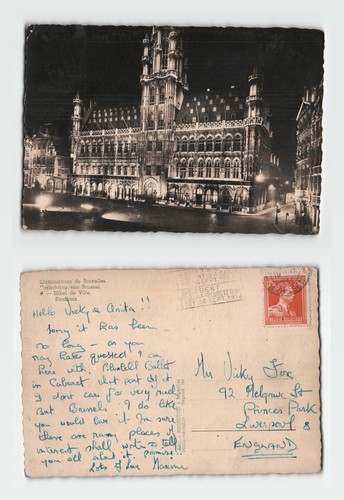 Illuminations de Bruxelles.
Verlichting van Brussel.
Hôtel de Ville.
Stadhuis.
Hello Vicky & Anita!!
Sorry it has been
so long - as you
may have guessed I am
here with Cluttell Ballet
in Cabaret that part of it
I don't care for very much
But Brussels I do like
you would love it I'm sure
there are many places of
interest shall write & tell
you all about it, promise!!
Lots of love Maxine
Mrs Vicky Fox
92 Melgrave St
Princes Park
Liverpool 8
ENGLAND